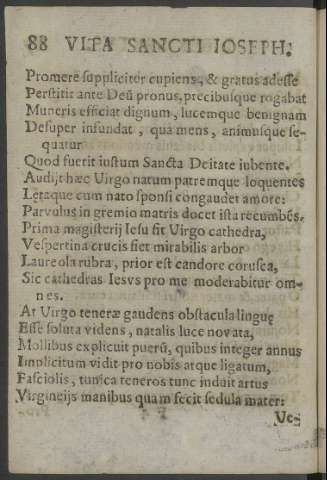 88 VITA SANCTI IOSEPH.
Promerē suppliciter cupiens, & gratus adesse
Perstitit ante Deū pronus, precibusque rogabat
Muneris efficiat dignum, lucemque benignam
Desuper infundat, quâ mens, animusque se-
quatur
Quod fuerit iustum Sancta Deitate iubente.
Audijt hæc Virgo natum patremque loquentes
Letaque cum nato sponsi congaudet amore:
Parvulus in gremio matris docet ista recumbēs.
Prima magisterij Iesu fit Virgo cathedra,
Vespertina crucis fiet mirabilis arbor
Laureola rubra, prior est candore corusca,
Sic cathedras Iesvs pro me moderabitur om-
nes.
At Virgo teneræ gaudens obstacula linguę
Esse soluta videns, natalis luce novata,
Mollibus explicuit puerū, quibus integer annus
Implicitum vidit pro nobis atque ligatum,
Fasciolis, tunica teneros tunc induit artus
Virgineijs manibus quam fecit sedula mater:
Ves